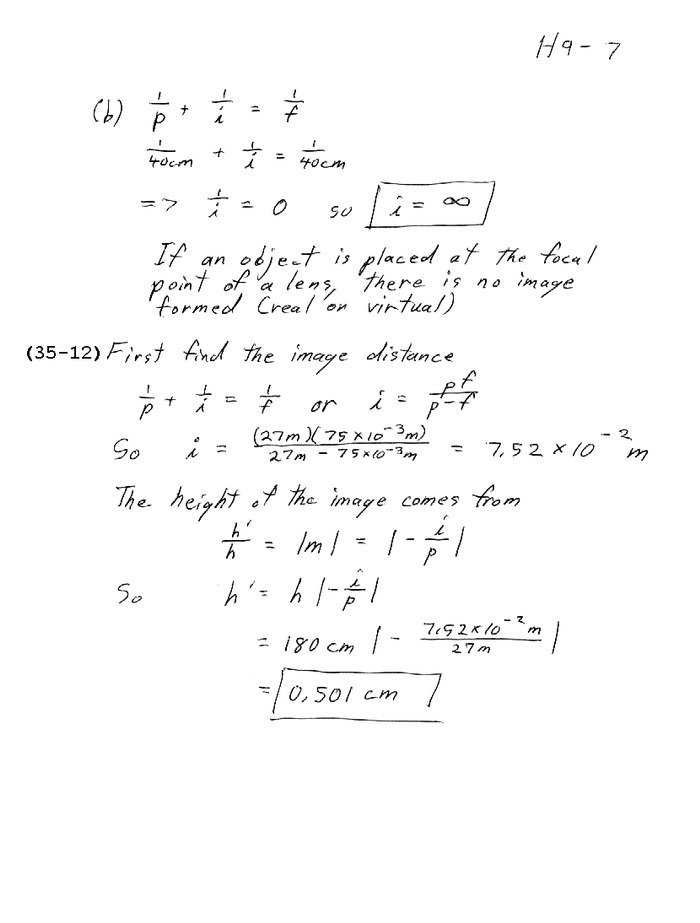 H9-7
(b) 1/p + 1/i = 1/f
1/40cm + 1/i = 1/40cm
=> 1/i = 0 so i = ∞
If an object is placed at the focal
point of a lens, there is no image
formed (real or virtual)
(35-12) First find the image distance
1/p + 1/i = 1/f or i = pf/p-f
So i = (27m)(75×10⁻³m)/27m - 75×10⁻³m = 7.52 × 10⁻² m
The height of the image comes from
h'/h = |m| = |- i/p|
So h' = h |- i/p|
= 180 cm |- 7.52×10⁻² m/27m|
= 0.501 cm